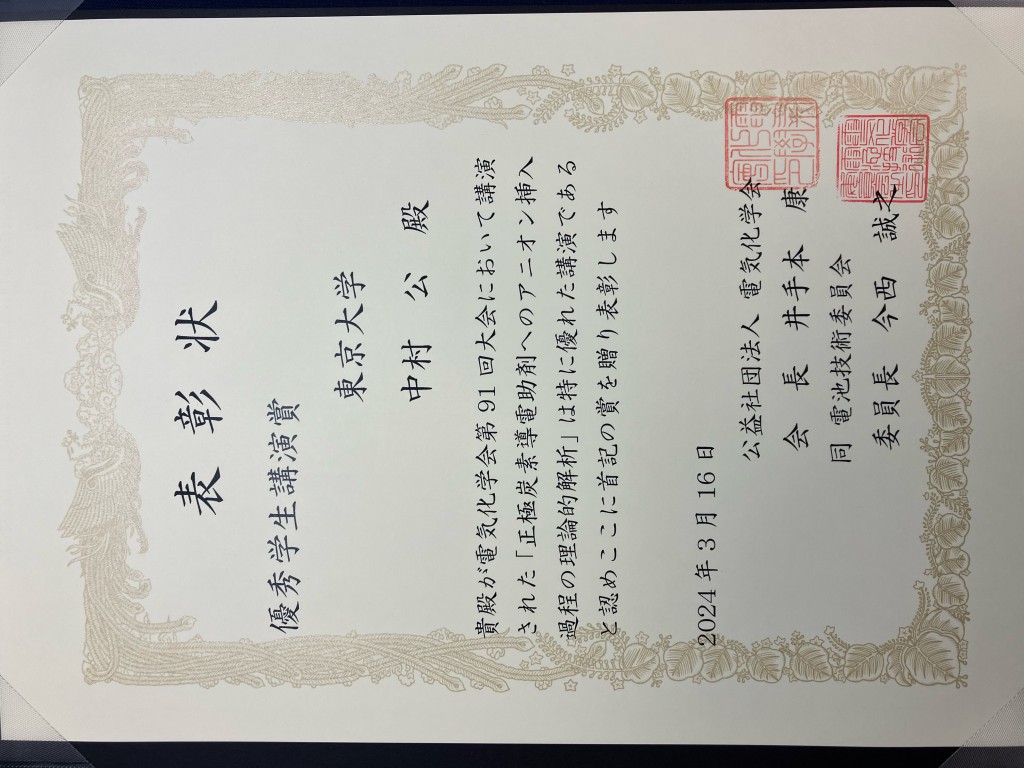 表彰状
優秀学生講演賞
東京大学
中村 公 殿
貴殿が電気化学会第91回大会において講演
された「正極炭素導電助剤へのアニオン挿入
過程の理論的解析」は特に優れた講演である
と認めここに首記の賞を贈り表彰します
2024年3月16日
公益社団法人 電気化学会
会長 井手本 康
同 電池技術委員会
委員長 今西 誠之